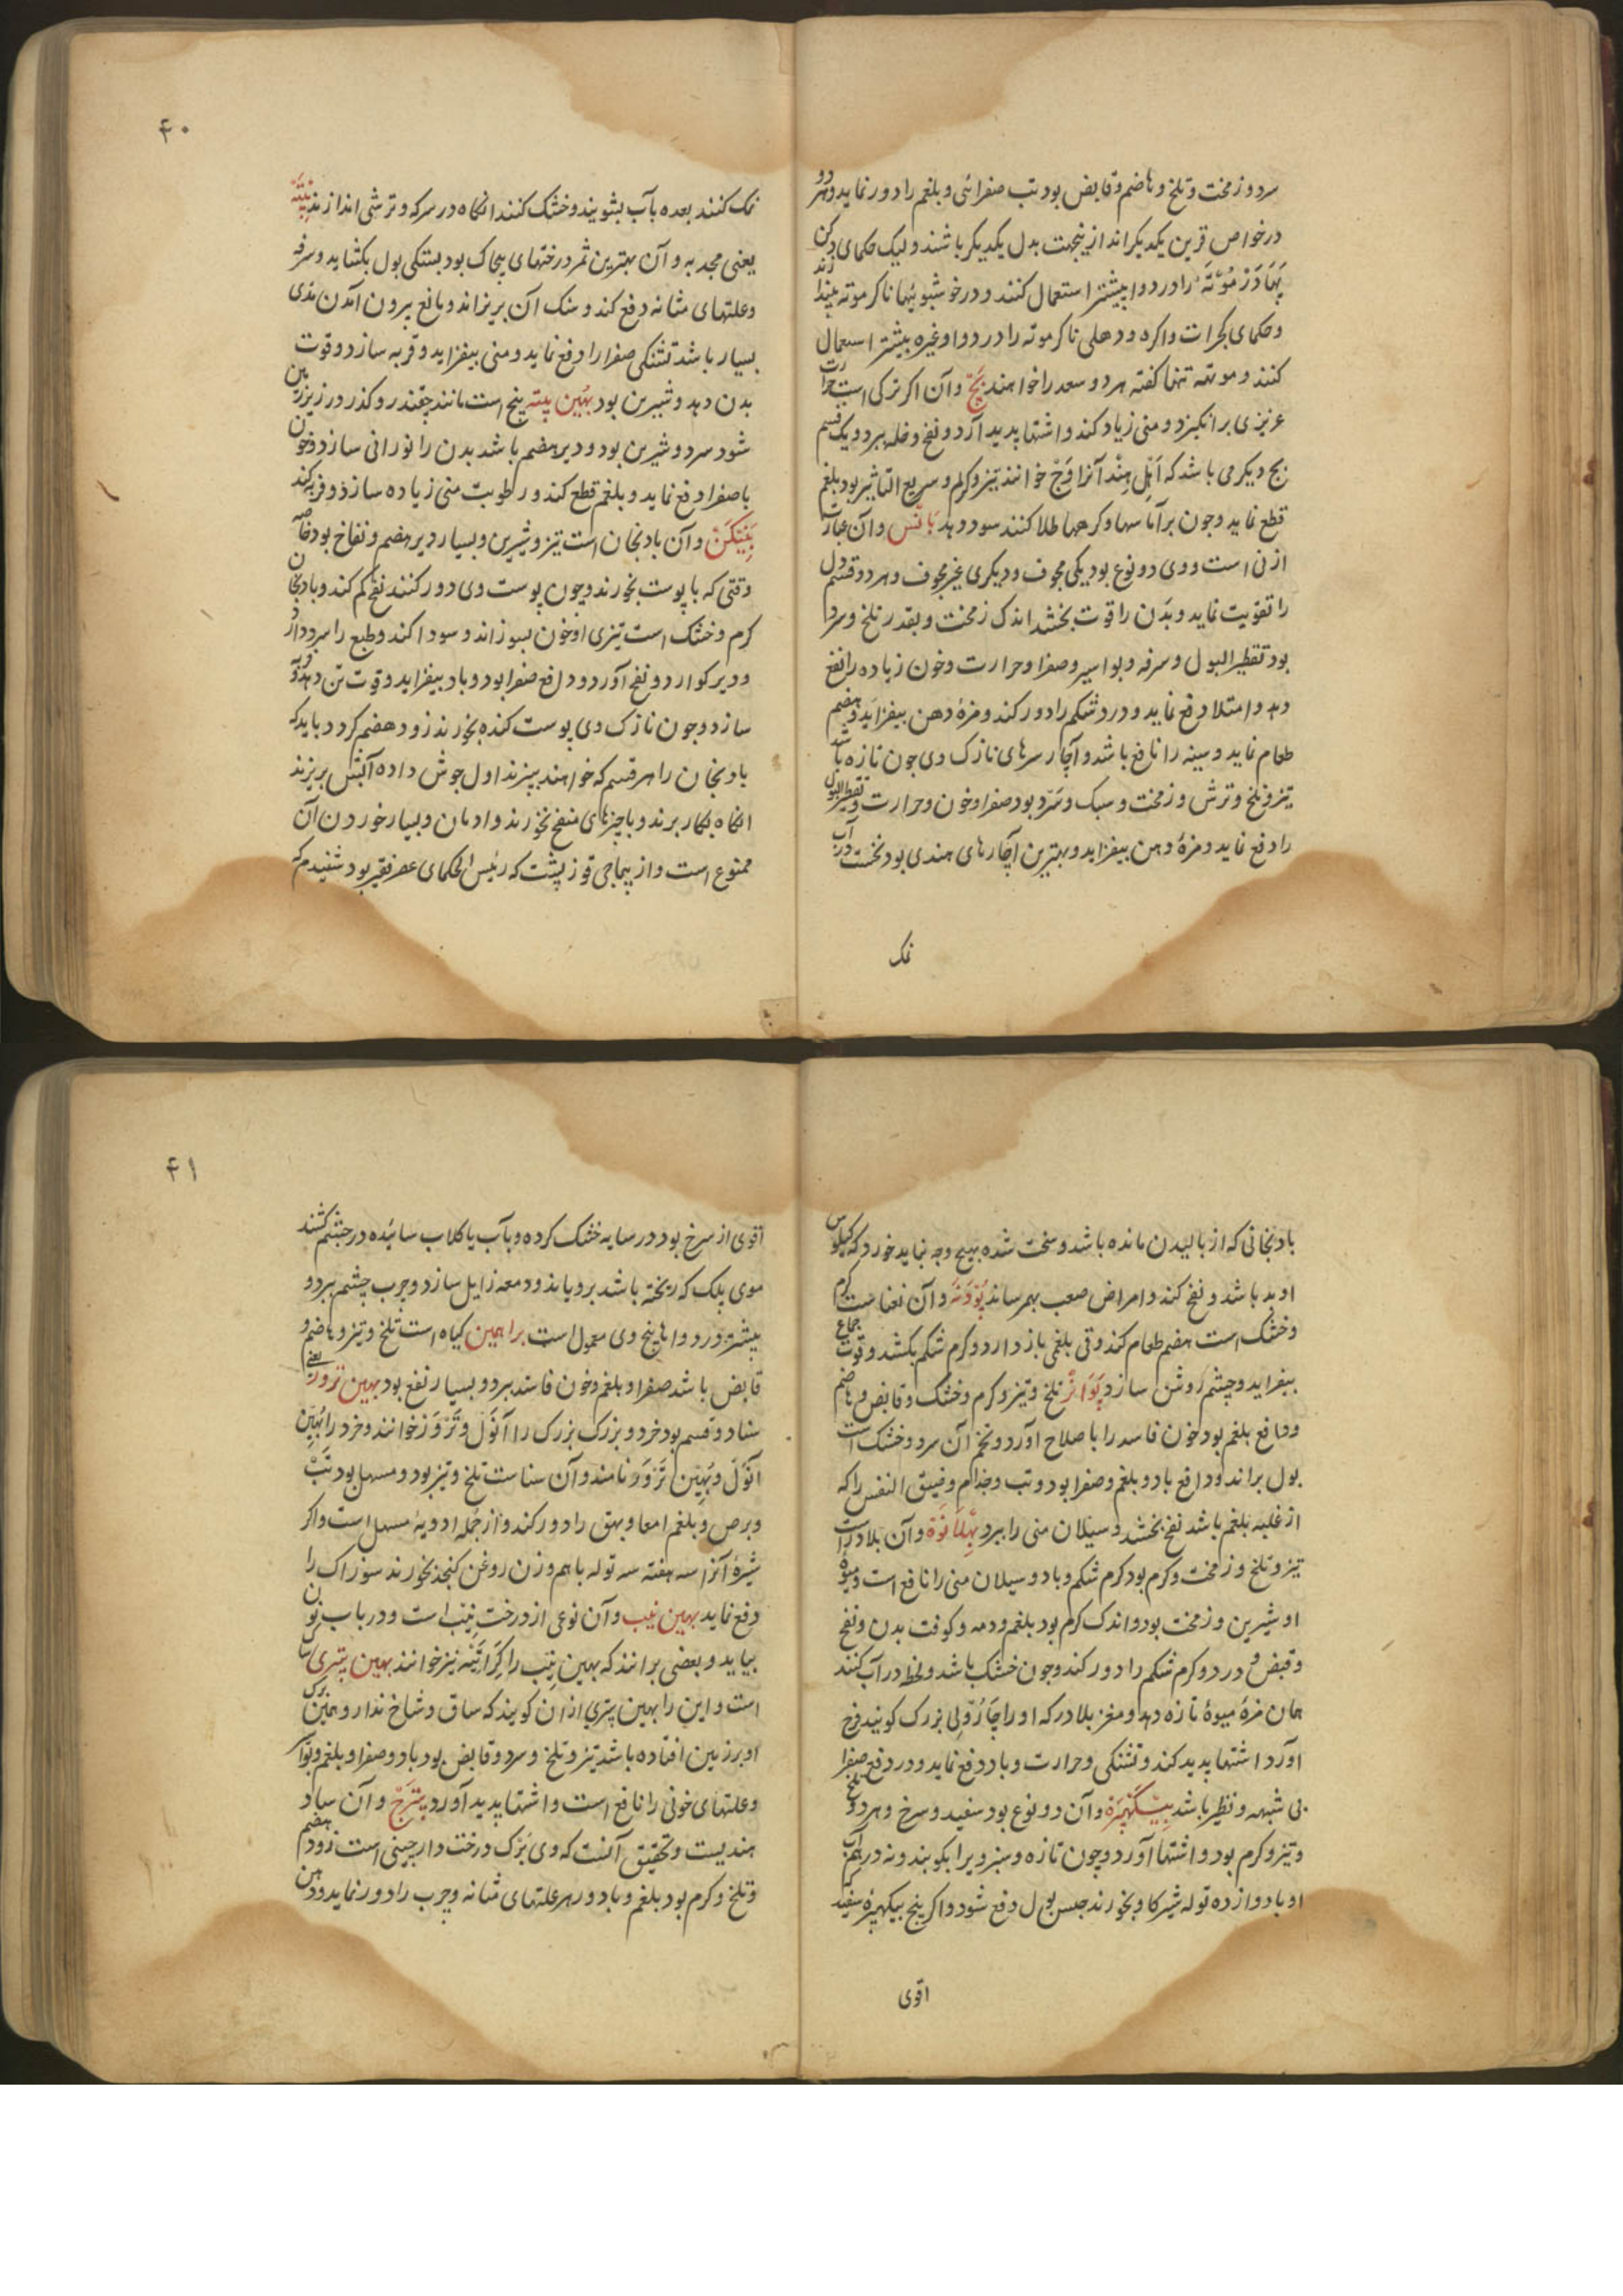 سرد و زمخت و تلخ و هاضم و قابض بود تب صفرائی و بلغم را دور نماید و هر دو
در خواص قرین یکدیکراند ازینجهت بدل یکدیکر باشند و لیک حکمای دکن
بهادرموته را در دوا بیشتر استعمال کنند و در خوشبوئیها ناکرموته اندازند
و حکمای کجرات و اکره و دهلی ناکرموته را در دوا و غیره بیشتر استعمال
کنند و موتهه تنها کفته هر دو سعد را خواهند بچ و آن اکر ترکی است حرارت
عزیزی برانکیزد و منی زیاد کند و اشتها پدید آرد و نفخ و فله ببرد و یک قسم
بچ دیکر می باشد که اهل هند آنرا وَچ خوانند تیز و کرم و سریع التاثیر بود بلغم
قطع نماید و چون بر آماسها و کرهها طلا کنند سود دهد بانس و آن عبارت
از نی است و وی دو نوع بود یکی مجوف و دیکری غیر مجوف و هر دو قسم دل
را تقویت نماید و بدن را قوت بخشد اندک زمخت و بقدر تلخ و سرد
بود تقطیر البول و سرفه و بواسیر و صفرا و حرارت و خون زیاده را نفع
دهد و امتلا دفع نماید و درد شکم را دور کند و مزهٔ دهن بیفزاید و هضم
طعام نماید و سینه را نافع باشد و آچار سرهای نازک وی چون تازه باشد
تیز و تلخ و ترش و زمخت و سبک و سرد بود صفرا و خون و حرارت و تقطیر البول
را دفع نماید و مزهٔ دهن بیفزاید و بهترین آچارهای هندی بود نخست در آب
نمک
۴۰
نمک کنند بعده بآب بشویند و خشک کنند انکاه در سرکه و ترشی اندازند
یعنی مجدبه و آن بهترین ثمر درختهای بیجاک بود بستکی بول بکشاید و سرفه
و علتهای مثانه دفع کند و سنک آن بریزاند و مانع بیرون آمدن مذی
بسیار باشد تشنکی صفرا را دفع نماید و منی بیفزاید و فربه سازد و قوت
بدن دهد و شیرین بود بهین پیته بیخ است مانند چقندر و کذر و در زیر زمین
شود سرد و شیرین بود و دیر هضم باشد بدن را نورانی سازد و خون
با صفرا دفع نماید و بلغم قطع کند و رطوبت منی زیاده سازد و فربه کند
بینکن و آن بادنجان است تیز و شیرین و بسیار دیر هضم و نفاخ بود خاصه
وقتی که با پوست بخورند و چون پوست وی دور کنند نفخ کم کند و بادنجان
کرم و خشک است تیزی او خون بسوزاند و سودا کند و طبع را سرد دارد
و دیر کوارد و نفخ آورد و دافع صفرا بود و باد بیفزاید و قوت تن دهد و فربه
سازد و چون نازک وی پوست کنده بخورند زود هضم کردد باید که
بادنجان را هر قسم که خواهند بپزند اول جوش داده آبش بریزند
انکاه بکار برند و با چیزهای منفخ نخورند و ادمان و بسیار خوردن آن
ممنوع است و از پیماجی قوزپشت که رئیس الحکمای عصر فقیر بود شنیدم که
بادنجانی که از بالیدن مانده باشد و سخت شده بهیچ وجه نباید خورد که کیلوس
او بد باشد و نفخ کند و امراض صعب بهم رساند پودنه و آن نعناست کرم
و خشک است هضم طعام کند و قی بلغمی باز دارد و کرم شکم بکشد و قوت جماع
بیفزاید و چشم روشن سازد پَوَاڑ تلخ و تیز و کرم و خشک و قابض و هاضم
و دافع بلغم بود خون فاسد را باصلاح آورد و تخم آن سرد و خشک است
بول براند و دافع باد و بلغم و صفرا بود و تب و جذام و ضیق النفس را که
از غلبه بلغم باشد نفع بخشد و سیلان منی را ببرد بهلانوه و آن بلادر است
تیز و تلخ و زمخت و کرم بود کرم شکم و باد و سیلان منی را نافع است و میوهٔ
او شیرین و زمخت بود و اندک کرم بود بلغم و دمه و کوفت بدن و نفخ
و قبض و درد و کرم شکم را دور کند و چون خشک باشد و لخط در آب کنند
همان مزهٔ میوهٔ تازه دهد و مغز بلادر که او را چارولی بزرک کویند فرح
آورد اشتها پدید کند و تشنکی و حرارت و باد دفع نماید و در دفع صفرا
بی شبهه و نظیر باشد بیسکهپره و آن دو نوع بود سفید و سرخ و هر دو تلخ
و تیز و کرم بود و اشتها آورد و چون تازه و سبز ویرا بکوبند و نه درم آب
او با دوازده توله شیر کاو بخورند حبس بول دفع شود و اکر بیخ بیسکهپرهٔ سفید
اقوی
۴۱
اقوی از سرخ بود در سایه خشک کرده و بآب یا کلاب سائیده در چشم کشند
موی پلک که ریخته باشد برویاند و دمعه زایل سازد و جرب چشم ببرد و
بیشتر در دواها بیخ وی معمول است براهمین کیاه است تلخ و تیز و هاضم و
قابض باشد صفرا و بلغم و خون فاسد ببرد و بسیار نفع بود بهین ترور یعنی
سنا و دو قسم بود خرد و بزرک بزرک را آنول و ترور خوانند و خرد را بهین
آنول و بهین ترور نامند و آن سناست تلخ و تیز بود و مسهل بود تب
و برص و بلغم امعا و بهق را دور کند و از جمله ادویهٔ مسهل است و اکر
شیرهٔ آنرا سه هفته سه توله با هم وزن روغن کنجد بخورند سوزاک را
دفع نماید بهین نیب و آن نوعی از درخت نیب است و در باب نون
بیاید و بعضی برانند که بهین نیب را کراتیته نیز خوانند بهین پتری
است و این را بهین پتری ازان کویند که ساق و شاخ ندارد و همین برک
او بر زمین افتاده باشد تیز و تلخ و سرد و قابض بود باد و صفرا و بلغم و بواسیر
و علتهای خونی را نافع است و اشتها پدید آورد پترج و آن ساد
هندیست و تحقیق آنست که وی برک درخت دارچینی است زود هضم
و تلخ و کرم بود بلغم و باد و هر علتهای مثانه و جرب را دور نماید و دهن